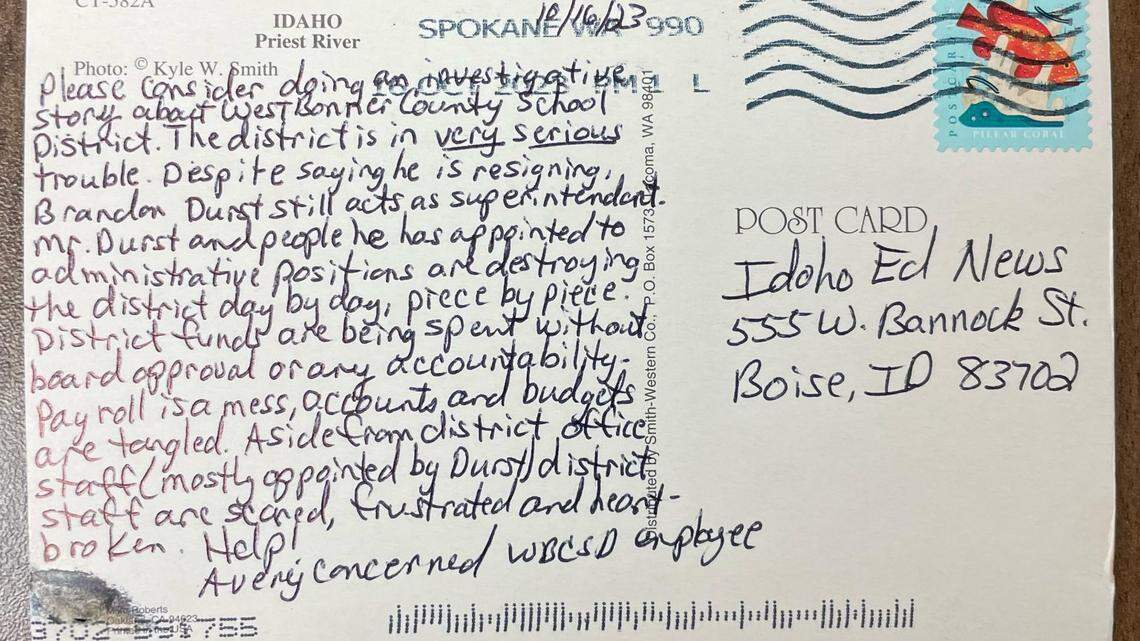 CT-382A
IDAHO
Priest River
Photo: © Kyle W. Smith
10/16/23
SPOKANE WA 990
16 OCT 2023 PM 1 L
Please consider doing an investigative
story about West Bonner County School
District. The district is in very serious
trouble. Despite saying he is resigning,
Brandon Durst still acts as superintendent.
Mr. Durst and people he has appointed to
administrative positions are destroying
the district day by day, piece by piece.
District funds are being spent without
board approval or any accountability.
Payroll is a mess, accounts and budgets
are tangled. Aside from district office
staff (mostly appointed by Durst) district
staff are scared, frustrated and heart-
broken. Help!
A very concerned WBCSD employee
Distributed by Smith-Western Co., P.O. Box 1573, Tacoma, WA 98401
POSTCARD
PILLAR CORAL
POST CARD
Idaho Ed News
555 W. Bannock St.
Boise, ID 83702
Roberts
Oakland, CA 94623
Printed in the USA
755